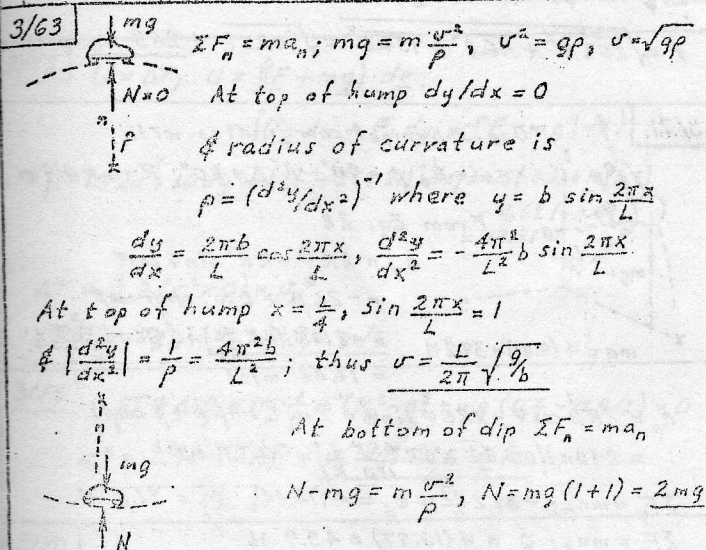 3/63
mg
ΣFₙ = maₙ; mg = m v²/ρ, v² = gρ, v = √gρ
N=0 At top of hump dy/dx = 0
n
& radius of curvature is
ρ
ρ = (d²y/dx²)⁻¹ where y = b sin 2πx/L
dy/dx = 2πb/L cos 2πx/L, d²y/dx² = - 4π²/L² b sin 2πx/L
At top of hump x = L/4, sin 2πx/L = 1
& |d²y/dx²| = 1/ρ = 4π²b/L²; thus v = L/2π √g/b
n
At bottom of dip ΣFₙ = maₙ
mg
N-mg = m v²/ρ, N = mg (1+1) = 2mg
N